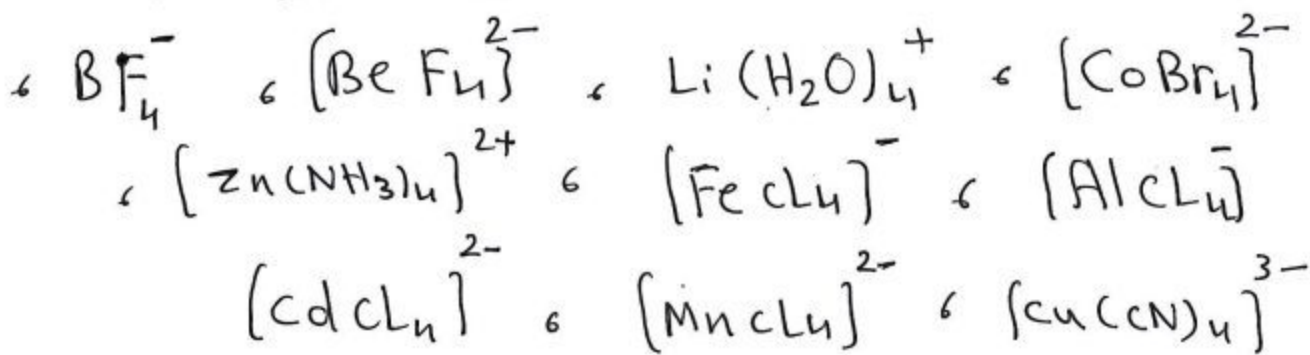 ، BF₄⁻ ، [BeF₄]²⁻ ، Li(H₂O)₄⁺ ، [CoBr₄]²⁻
، [Zn(NH₃)₄]²⁺ ، [FeCL₄]⁻ ، [AlCL₄⁻]
[CdCL₄]²⁻ ، [MnCL₄]²⁻ ، [Cu(CN)₄]³⁻